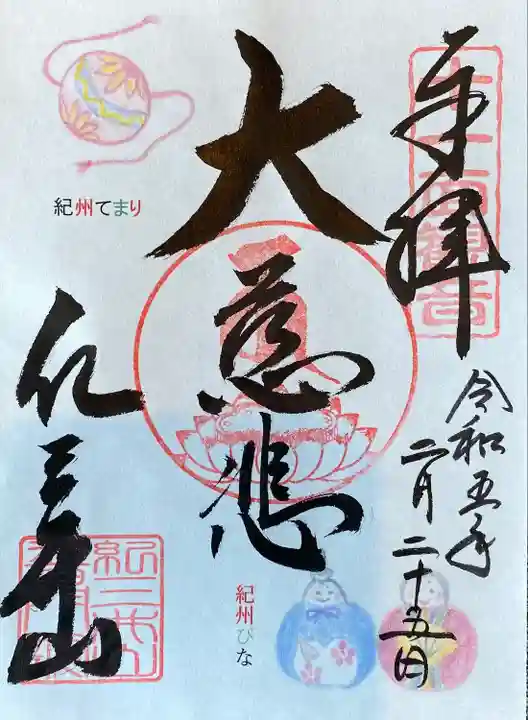 奉拝
十一面観音
令和五年
二月二十五日
大慈悲
紀州てまり
紀州びな
紀三井山